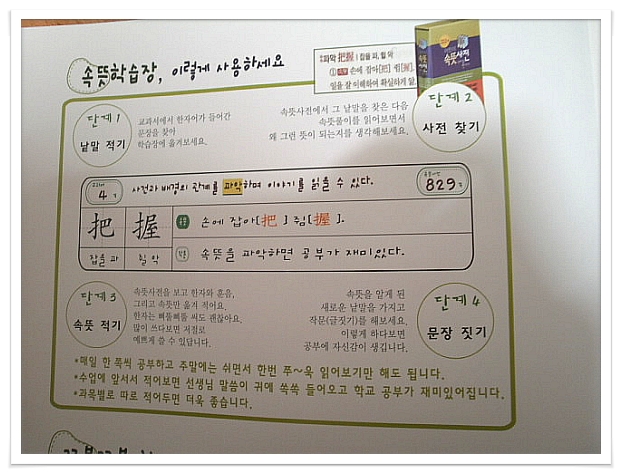 속뜻학습장, 이렇게 사용하세요
파악 把握 | 잡을 파, 쥘 악
① 속뜻 손에 잡아[把] 쥠[握].
일을 잘 이해하여 확실하게 앎.
속뜻사전
단계 1
낱말 적기
교과서에서 한자어가 들어간
문장을 찾아
학습장에 옮겨보세요.
속뜻사전에서 그 낱말을 찾은 다음
속뜻풀이를 읽어보면서
왜 그런 뜻이 되는지를 생각해보세요.
단계 2
사전 찾기
4
사건과 배경의 관계를 파악하며 이야기를 읽을 수 있다.
829
把 握
잡을 파 쥘 악
손에 잡아[把] 쥠[握].
속뜻을 파악하면 공부가 재미있다.
단계 3
속뜻 적기
속뜻사전을 보고 한자와 훈음,
그리고 속뜻만 옮겨 적어요.
한자는 삐뚤삐뚤 써도 괜찮아요.
많이 쓰다보면 저절로
예쁘게 쓸 수 있답니다.
속뜻을 알게 된
새로운 낱말을 가지고
작문(글짓기)를 해보세요.
이렇게 하다보면
공부에 자신감이 생깁니다.
단계 4
문장 짓기
*매일 한 쪽씩 공부하고 주말에는 쉬면서 한번 쭈~욱 읽어보기만 해도 됩니다.
*수업에 앞서서 적어보면 선생님 말씀이 귀에 쏙쏙 들어오고 학교 공부가 재미있어집니다.
*과목별로 따로 적어두면 더욱 좋습니다.